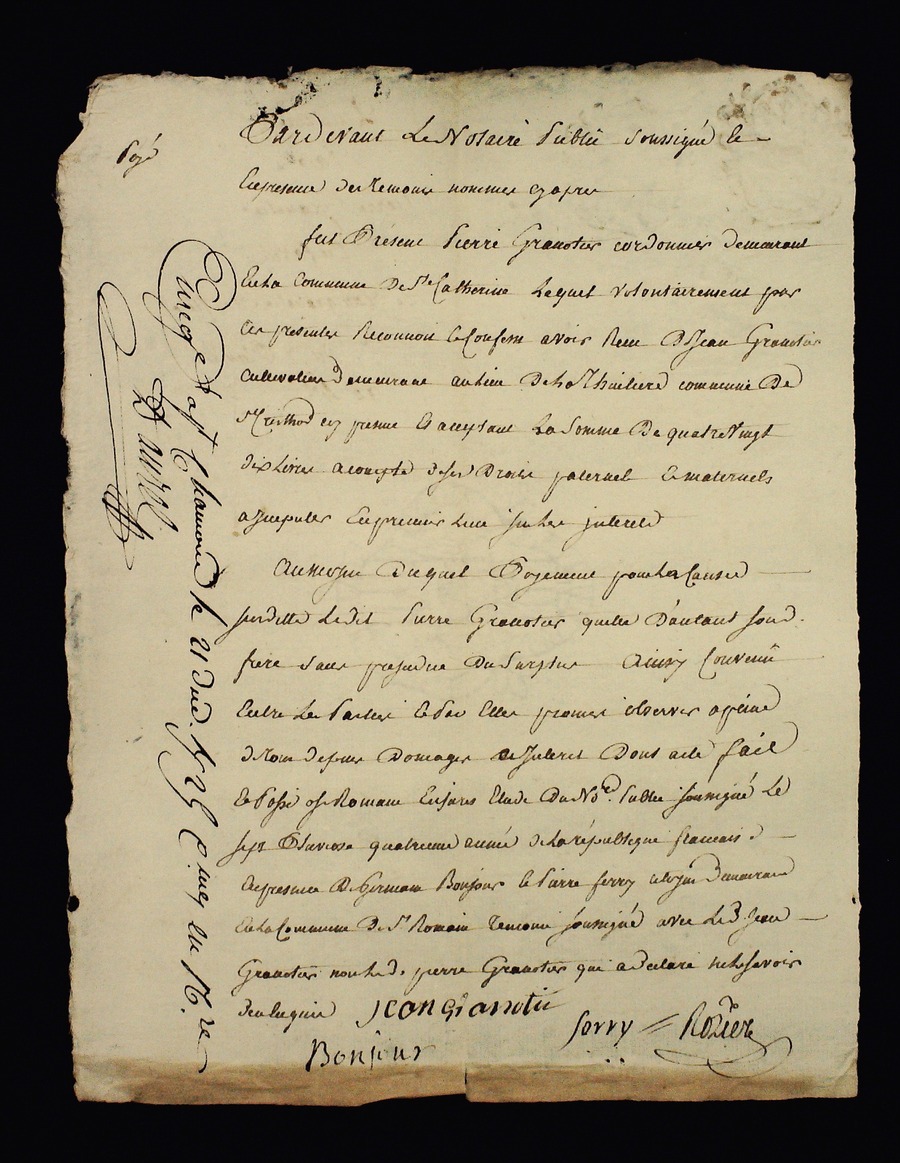 Pardevant Le Notaire Public soussigné Et
En presence des temoins nommes cy apres
fut Présent Pierre Granotier cordonnier demeurant
En La Commune De Ste Catherine Lequel volontairement par
Ces presentes Reconnoit Et Confesse avoir Recu De Jean Granotier
Cultivateur demeurant au lieu De commune De
St cy present Et acceptant La Somme De quatre Vingt
dix Livres acompte deses Droits paternels Et maternels
a Imputer En premier Lieu sur Les jnterets
Au moyen Duquel Payement pour La Cause
susditte Ledit Pierre Granotier quitte D'autant sond.
frere sans prejudice Du Surplus Ainsy Convenu
Entre Les Parties Et Par Elles promis observer a peine
de tous depens Domages Et Interets Dont acte fait
Et Passé a St Romain En jarez Etude Du Nore. Public soussigné Le
sept Pluviose quatrieme année de La république francaise
En presence De Germain Bonjour Et Pierre ferry demeurant
En La Commune De St Romain temoins soussigné avec Led. Jean
Granotier non Led. pierre Granotier qui a declaré ne le savoir
de ce Enquis Jean Granotié
ferry Rozier
Bonjour
Payé
Enregé a St Chamond le 21 R 25 en 16. re